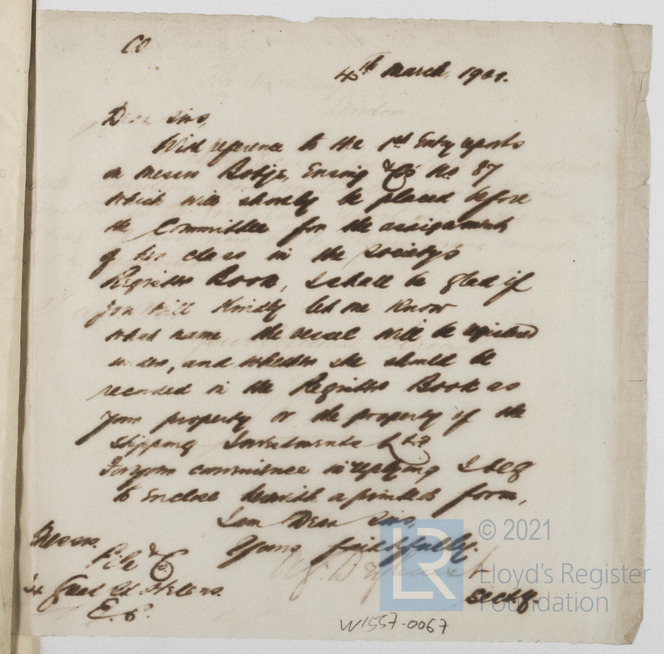 CO
4th March, 1901.
Dear Sirs,
With reference to the 1st Entry reports
on Messrs & Co's No 87
which will shortly be placed before
the Committee for the assignment
of her class in the Society's
Register Book, I shall be glad if
you will kindly let me know
what name the vessel will be registered
under, and whether she should be
recorded in the Register Book as
your property or the property of the
Shipping Investments Ltd
For your convenience in replying I beg
to enclose herewith a printed form,
I am Dear Sirs,
Yours faithfully.
Secty.
Messrs.
& Co
Great St Helens.
E.C.
W1557-0067
© 2021
LR
Lloyd's Register
Foundation